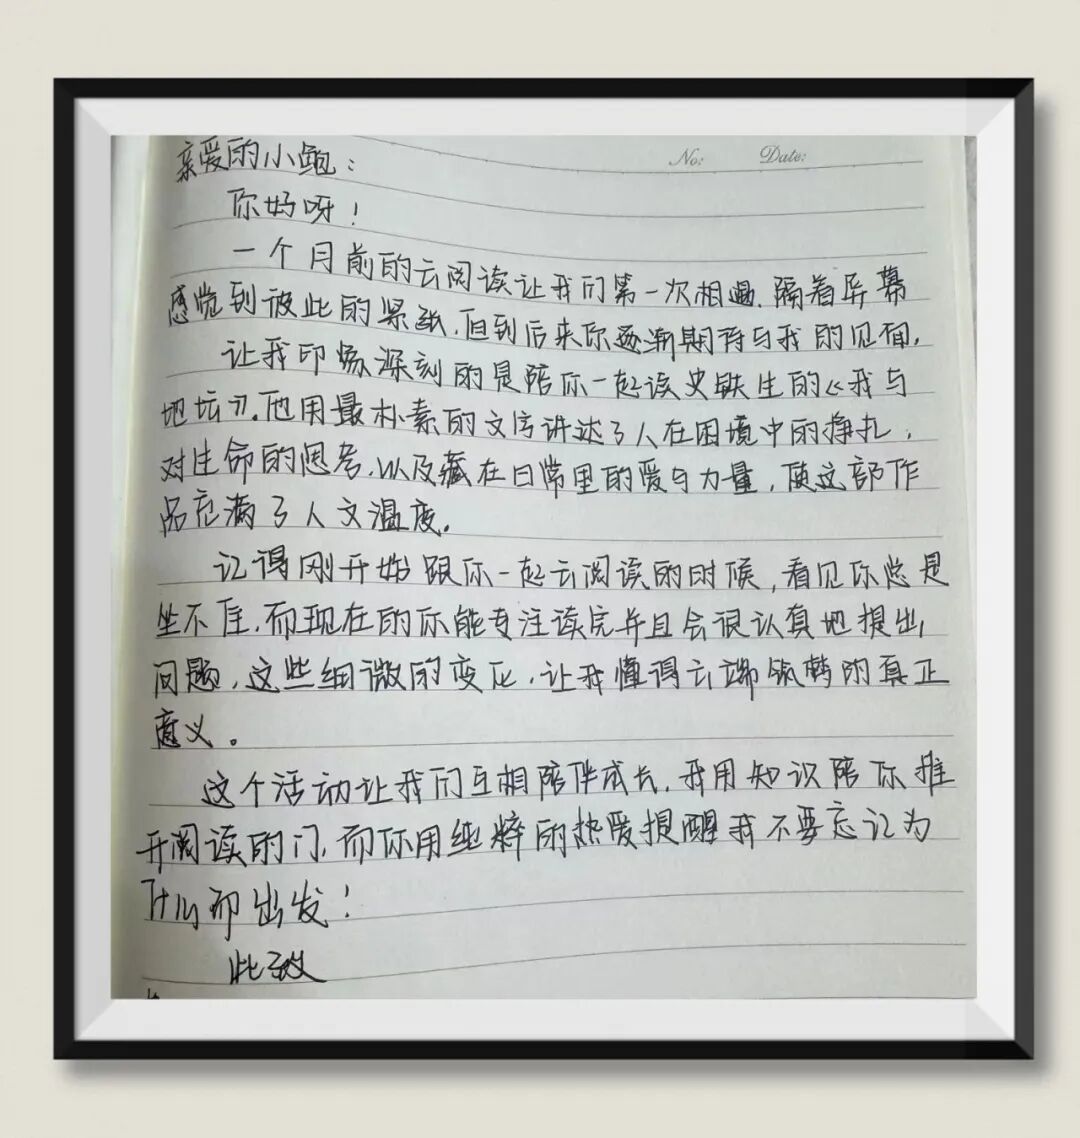 No: Date:
亲爱的小鲍:
你好呀!
一个月前的云阅读让我们第一次相遇.隔着屏幕
感觉到彼此的紧张,但到后来你逐渐期待与我的见面,
让我印象深刻的是陪你一起读史铁生的《我与
地坛》.他用最朴素的文字讲述了人在困境中的挣扎,
对生命的思考,以及藏在日常里的爱与力量,使这部作
品充满了人文温度.
记得刚开始跟你一起云阅读的时候,看见你总是
坐不住.而现在的你能专注读完并且会很认真地提出
问题,这些细微的变化,让我懂得云端 的真正
意义。
这个活动让我们互相陪伴成长,我用知识陪你推
开阅读的门,而你用纯粹的热爱提醒我不要忘记为
什么而出发!
此致